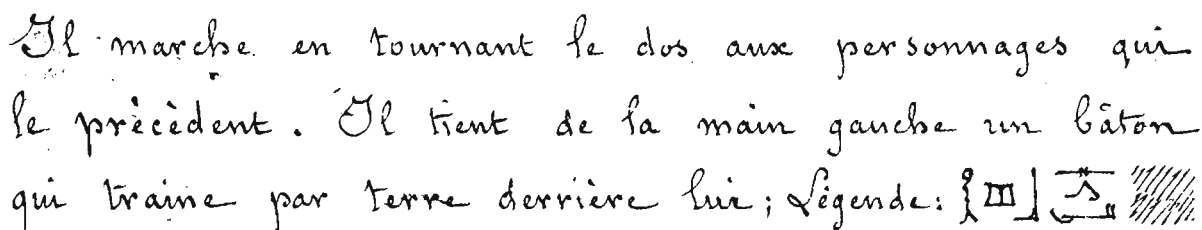 Il marche en tournant le dos aux personnages qui
le précèdent. Il tient de la main gauche un bâton
qui traine par terre derrière lui; Légende: